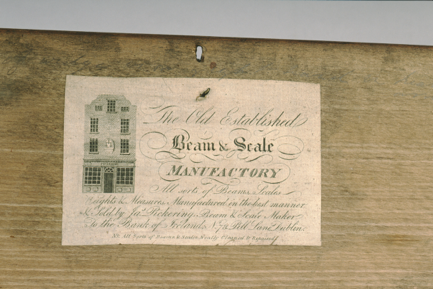 The Old Established
Beam & Scale
MANUFACTORY
All sorts of Beams, Scales
Weights & Measures, Manufactured in the best manner
& Sold by Jas. Pickering Beam & Scale Maker
To the Bank of Ireland, No. Pill Lane Dublin.